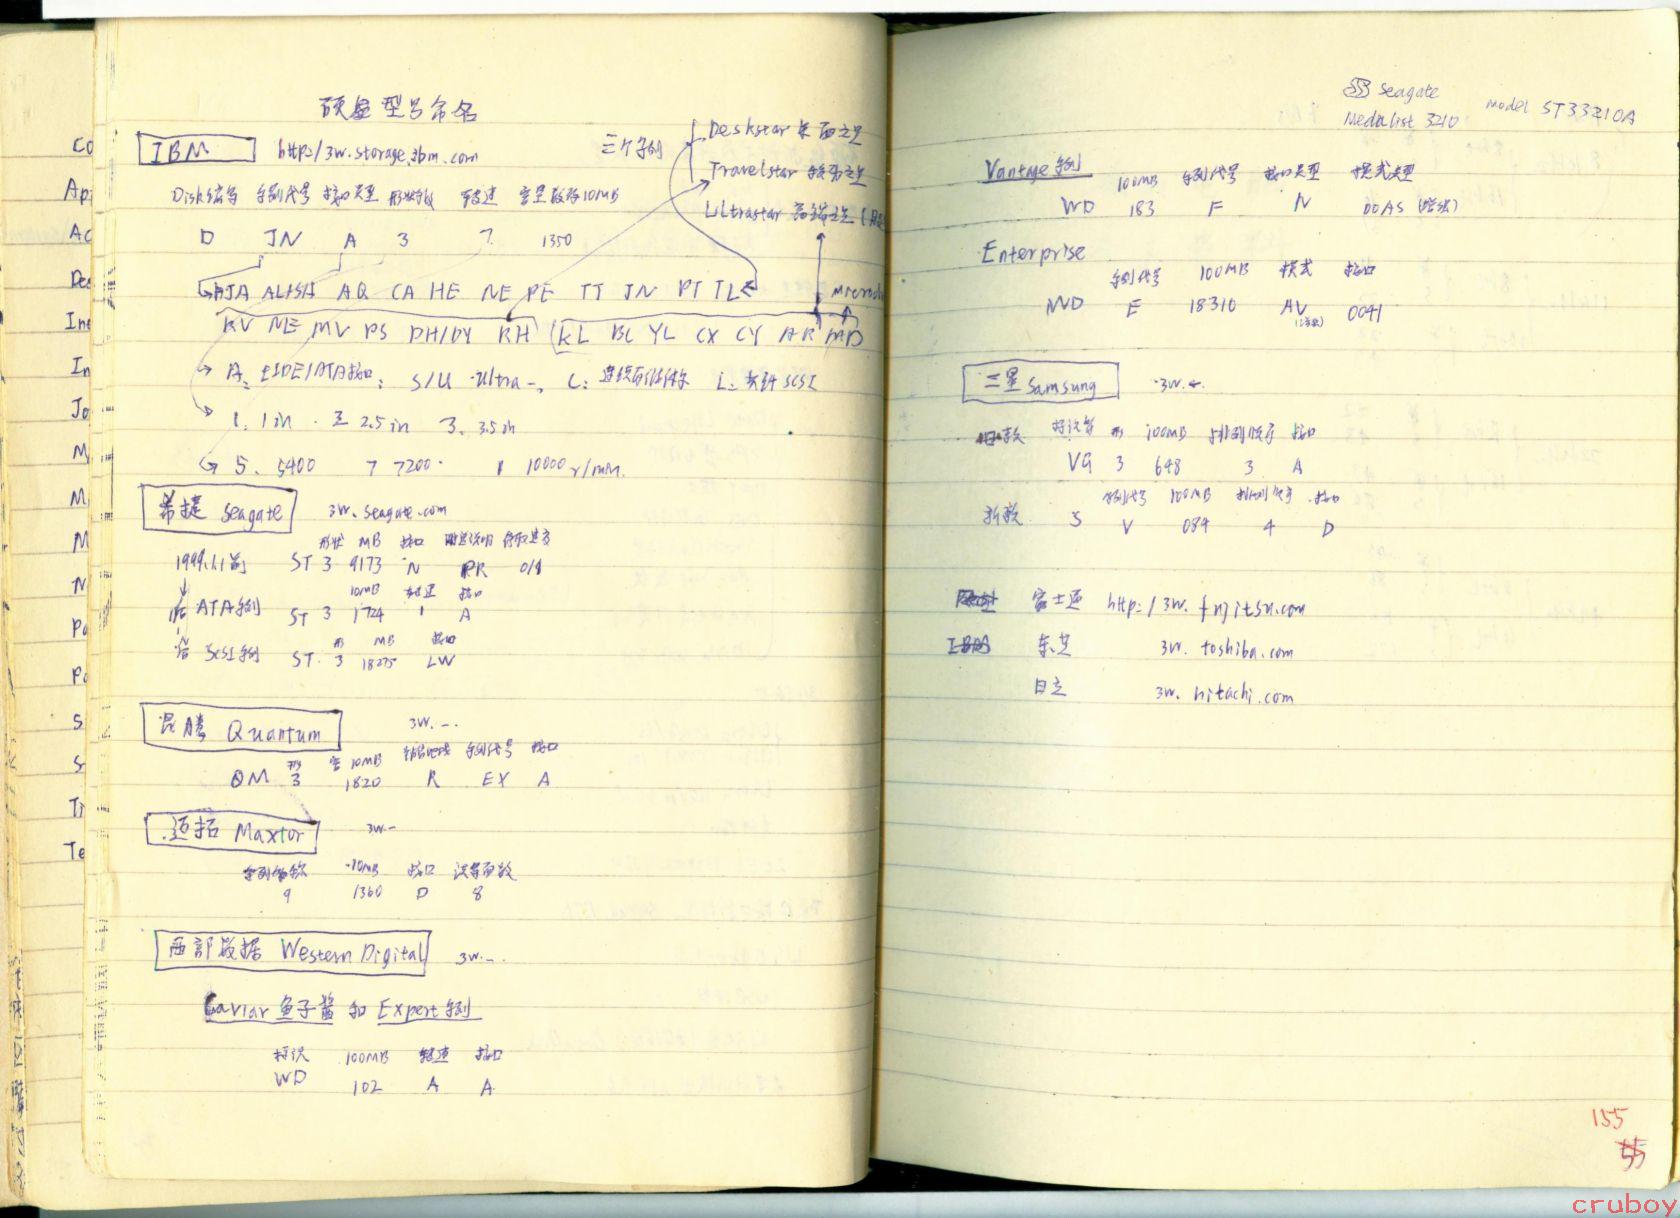 硬盘型号命名
IBM http://3w.storage.ibm.com 三个系列 Deskstar 桌面之星
Travelstar 移动之星
Ultrastar 高端之星
Disk编号 系列代号 接口类型 形状 转速 容量 10MB
D JN A 3 7 1350
AJA ALISA AQ CA HE NE PE TT JN PT TL
KV NE MV PS DH/DY RH (KL BC YL CX CY AR MD
A: EIDE/ATA接口; S/U Ultra-, C: L:
1. 1in 2 2.5in 3. 3.5in
5. 5400 7 7200 1 10000 r/min.
希捷 Seagate 3W. seagate.com
形状 MB 接口
1999.1.1前 ST 3 9173 N RR 0/1
10MB 转速 接口
后 ATA系列 ST 3 1724 1 A
形 MB 接口
后 SCSI系列 ST. 3 18275 LW
昆腾 Quantum 3W. -.
形 容 10MB 系列代号 接口
QM 3 1820 R EX A
迈拓 Maxtor 3W-
系列名称 10MB 接口 读写面数
9 1360 D 8
西部数据 Western Digital 3W.-.
Caviar 鱼子酱 和 Expert系列
标识 100MB 转速 接口
WD 102 A A
Seagate
Medalist 3210 Model ST33210A
Vantage系列 100MB 系列代号 接口类型 模式类型
WD 183 F N 00AS
Enterprise
系列代号 100MB 模式 接口
WD E 18310 AV 0041
三星 Samsung 3W.
旧款 标识符 形 100MB 排列顺序 接口
VG 3 648 3 A
系列代号 100MB 排列顺序 接口
新款 S V 084 4 D
富士通 http://3w.fujitsu.com
东芝 3W. toshiba.com
日立 3W. hitachi.com
155
55
cruboy